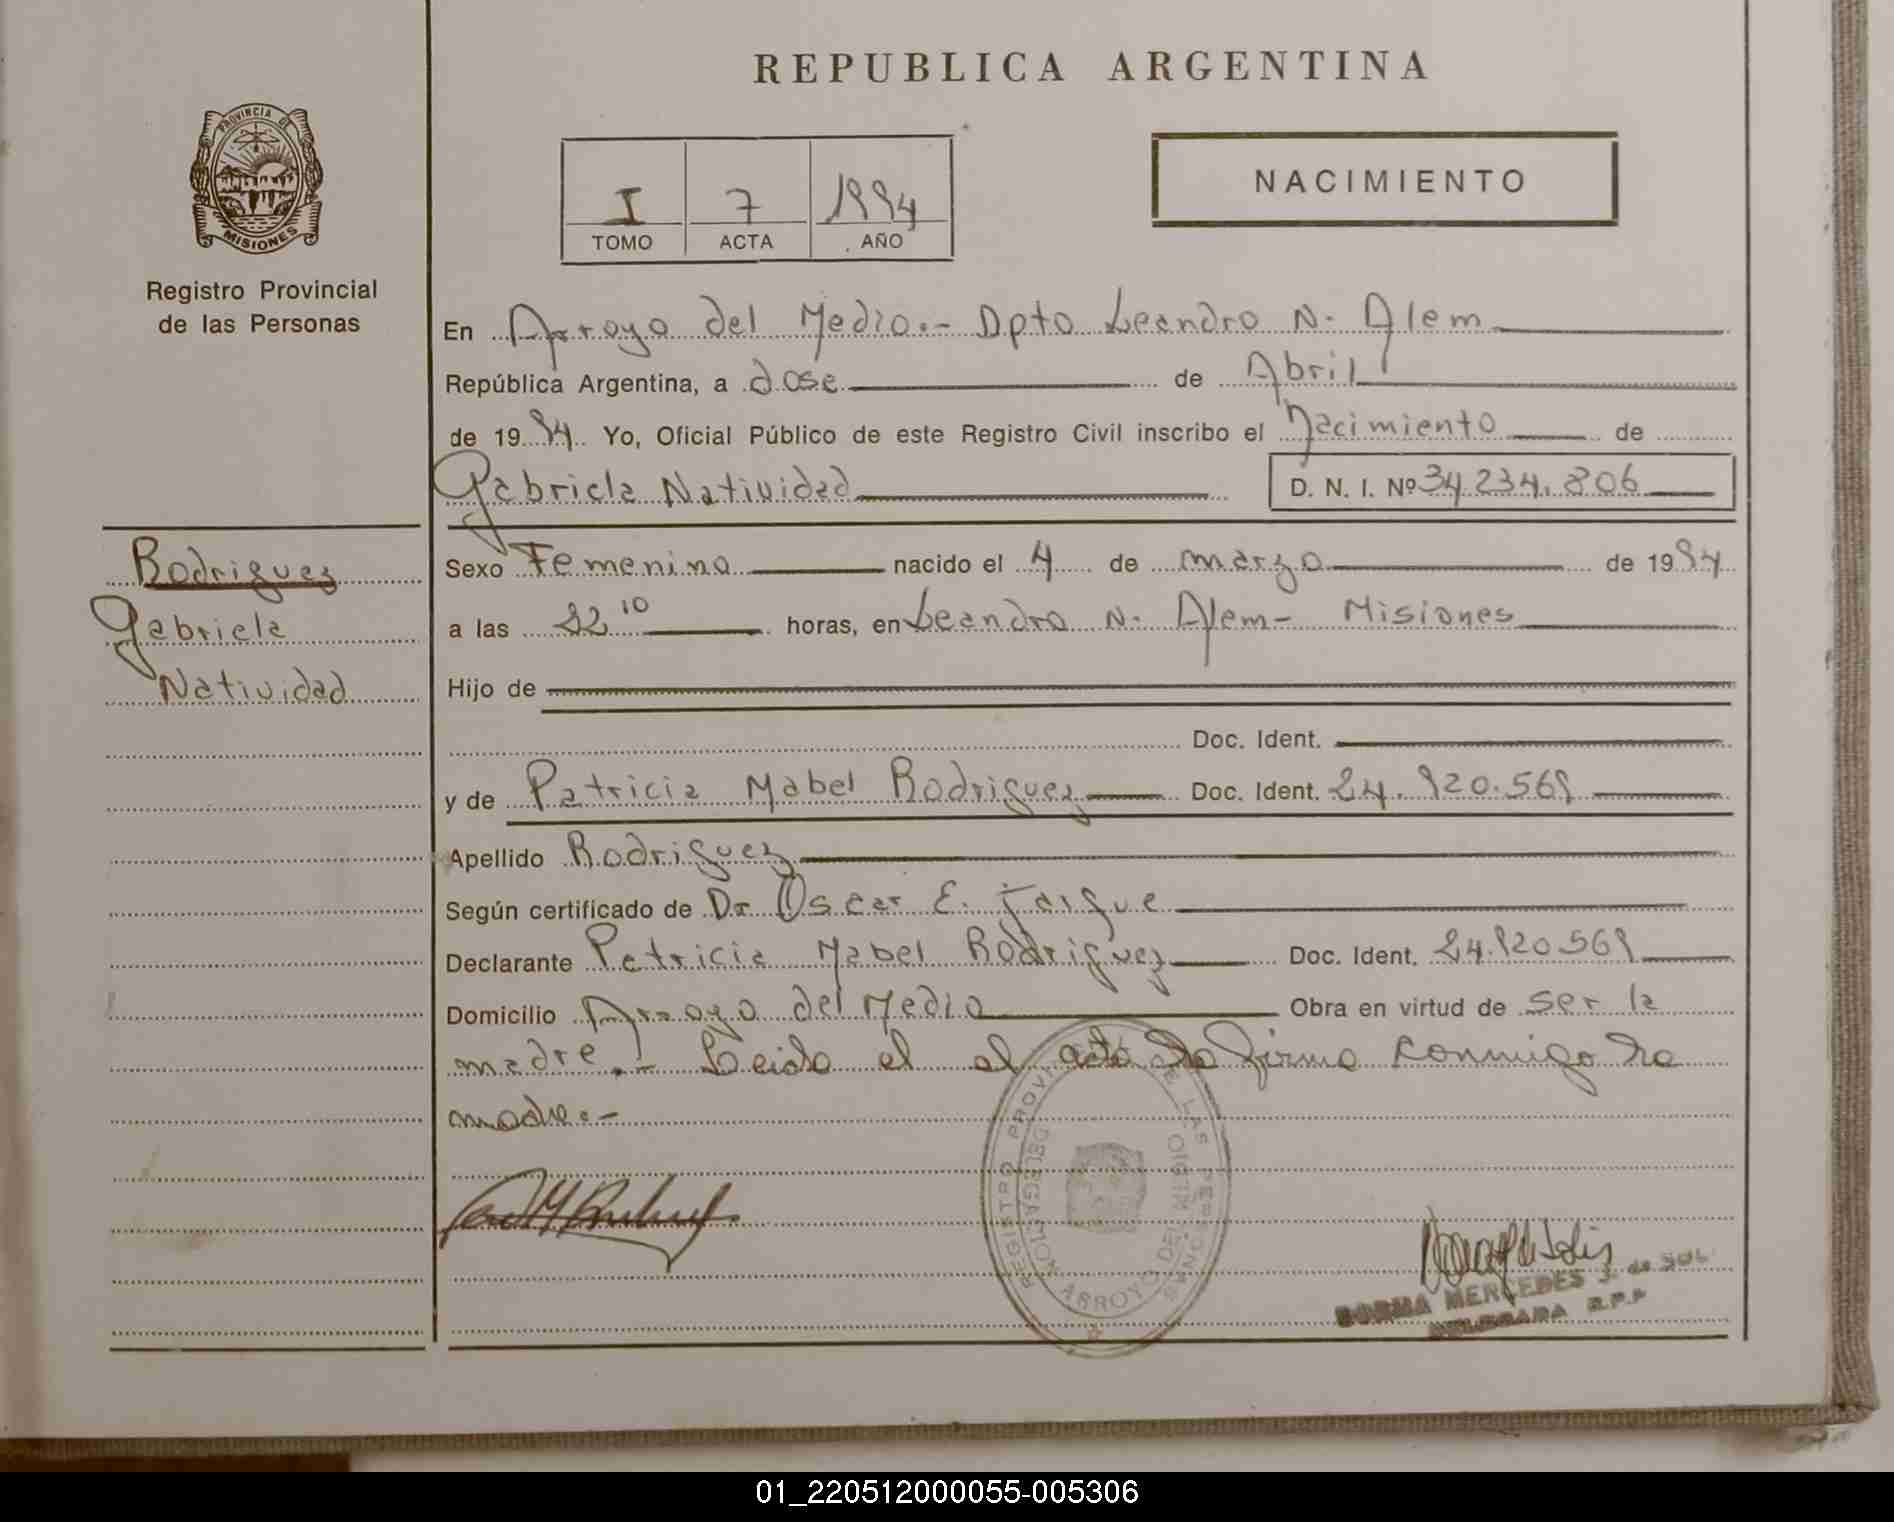 REPUBLICA ARGENTINA
PROVINCIA DE
MISIONES
Registro Provincial
de las Personas
I 7 1994
TOMO ACTA AÑO
NACIMIENTO
En Arroyo del Medio.- Dpto Leandro N. Alem
República Argentina, a dose de Abril
de 1994. Yo, Oficial Público de este Registro Civil inscribo el Nacimiento de
Gabriela Natividad D. N. I. Nº 34.234.806
Rodriguez
Gabriela
Natividad
Sexo Femenino nacido el 4 de marzo de 1994
a las 22 10 horas, en Leandro N. Alem - Misiones
Hijo de
Doc. Ident.
y de Patricia Mabel Rodriguez Doc. Ident. 24.920.569
Apellido Rodriguez
Según certificado de Dr Oscar E.
Declarante Patricia Mabel Rodriguez Doc. Ident. 24.920.569
Domicilio Arroyo del Medio Obra en virtud de ser la
madre.- Leida el el acta firma conmigo la
madre.-
REGISTRO PROVINCIAL DE LAS PERSONAS
DELEGACION ARROYO DEL MEDIO
MERCEDES J. de SOL
DELEGADA R.P.P
01_220512000055-005306